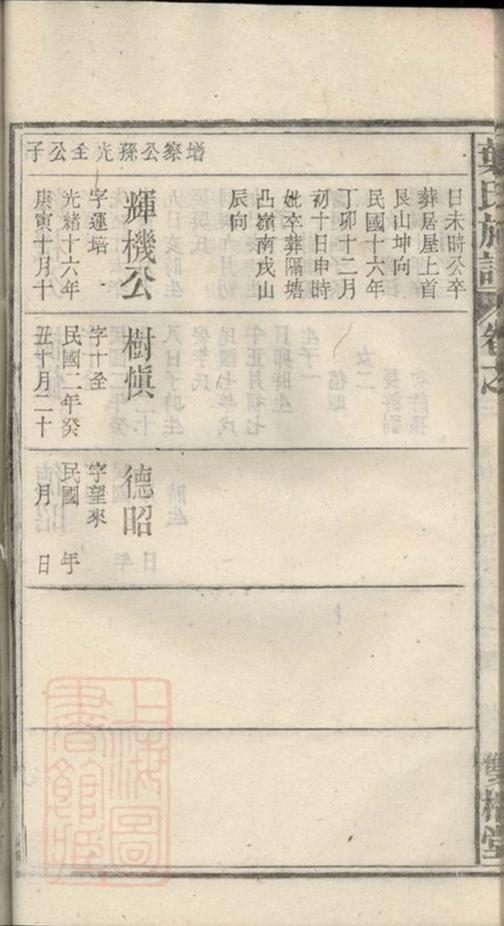 葉氏族譜
卷之
雙桂堂
増粲公孫光全公子
日未時公卒
葬居屋上首
艮山坤向
民國十六年
丁卯十二月
初十日申時
妣卒葬隔塘
凸嶺南戌山
辰向
輝機公
字運培
光緒十六年
庚寅十月十
樹慎
字十全
民國二年癸
丑十月二十
德昭
字望來
民國 年
月 日
上海圖書館藏